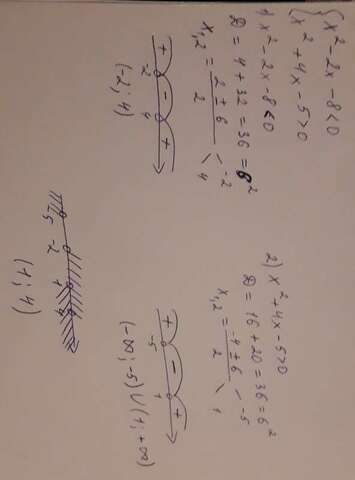 {x² - 2x - 8 < 0
{x² + 4x - 5 > 0
1) x² - 2x - 8 < 0
D = 4 + 32 = 36 = 6²
x₁,₂ = (2 ± 6)/2 < -2
4
+ - +
-2 4
(-2; 4)
2) x² + 4x - 5 > 0
D = 16 + 20 = 36 = 6²
x₁,₂ = (-4 ± 6)/2 < -5
1
+ - +
-5 1
(-∞; -5) ∪ (1; +∞)
-5 -2 1 4
(1; 4)